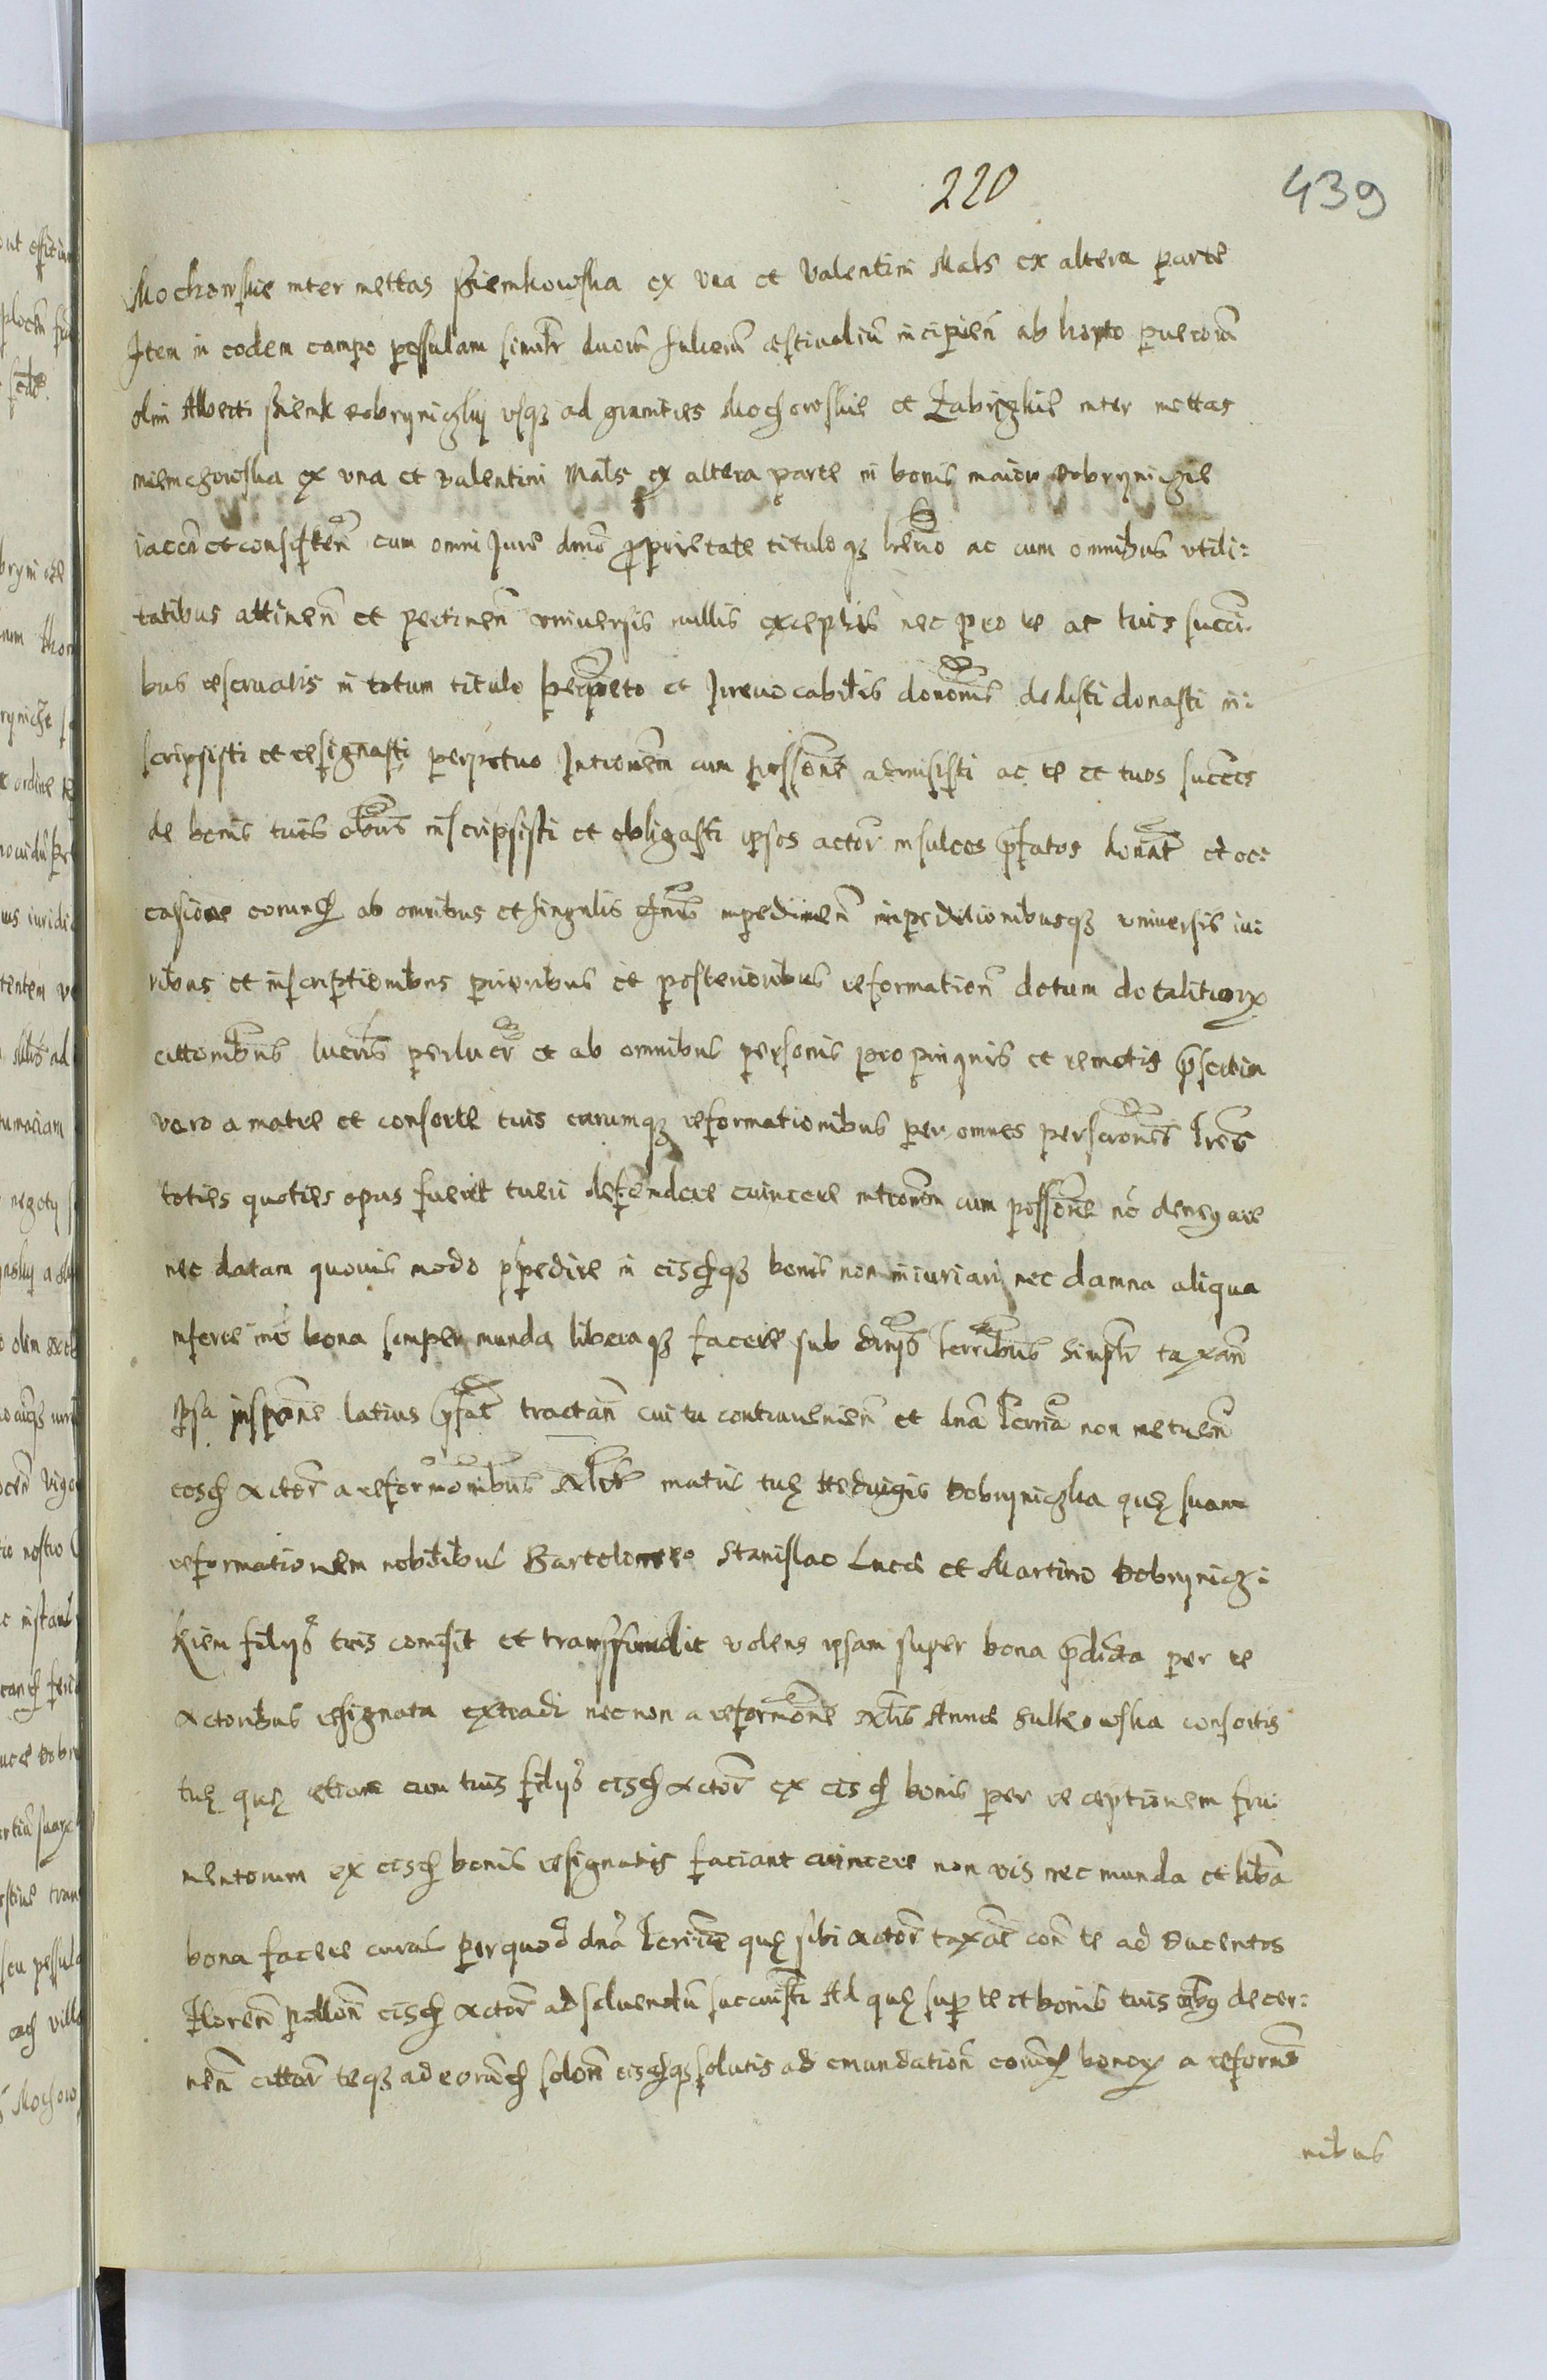 220
439
Mochowskie inter mettas Siemkowska ex vna et Valentini Mals ex altera parte
Item in eodem campo pessulam similr duorũ sulcorũ æstiualiũ incipieñ ab horto puerorũ
olim Alberti Siemk Dobryniczky vsqȝ ad granities Mochowskie et Zabyczkie inter mettas
niemczowska ex vna et Valentini Mals ex altera parte in bonis maiori Dobryniczie
iaceñ et consisteñ cum omni Jure dmō proprietate tituloqȝ hrēdio ac cum omnibus vtili:
tatibus attineñ et pertineñ vniuersis nullis exceptis nec pro te ac tuis succri
bus reseruatis in totum titulo perpetuo et Jrreuocabilis donōnis dedisti donasti in:
scripsisti et resignasti perpetuo Intromiem cum possione admisisti ac te et tuos succes
de bonis tuis obus inscripsisti et obligasti ipsos actor in sulcos p̄fatos donat et oc:
casione eorund ab omnibus et singulis impedimeñ impeditionibusqȝ vniuersis iu:
ribus et inscriptionibus prioribus et posterioribus reformation dotum dotalitiorꝝ
cittonibus lucris perlucr et ab omnibus personis propinquis et remotis p̄sertim
vero a matre et consorte tuis earumqȝ reformationibus per omnes perscronis tres
toties quoties opus fuerit tueri defendere euincere intromem cum possione nō denegare
nec datam quouis modo p̄pedire in eisdqȝ bonis non iniuriari nec damna aliqua
inferre imō bona semper munda liberaqȝ facere sub dnijs terribus Simplr taxañ
Ipsa inscpōne latius p̄fat tractañ cui tu contraueñ et dna terria non metueñ
eosd actor a reformonibus Altr matris tuę Heduigis Dobryniczka quę suam
reformationem nobilibus Bartolomeo Stanislao Luca et Martino Dobrynicz:
kiem filijs tuis comisit et transfundit volens ipsam super bona p̄dicta per te
actoribus resignata extradi necnon a reformone Altis Annæ Sulkowska consortis
tuę quę etiam cum tuis filijs eisd actor ex eisd bonis per receptionem fru
mentorum ex eisd bonis resignatis faciant euincere non vis nec munda et libra
bona facere curas per quod dna terria quę sibi actor taxat con te ad Ducentos
Floreñ polloñ eisd actor ad soluendũ succuisti Ad quę sup te et bonis tuis obus decer:
neñ cittor teqȝ ad eorund soloñ eisdqȝ solutis ad emundation eorund bonorꝝ a reforme
nibus